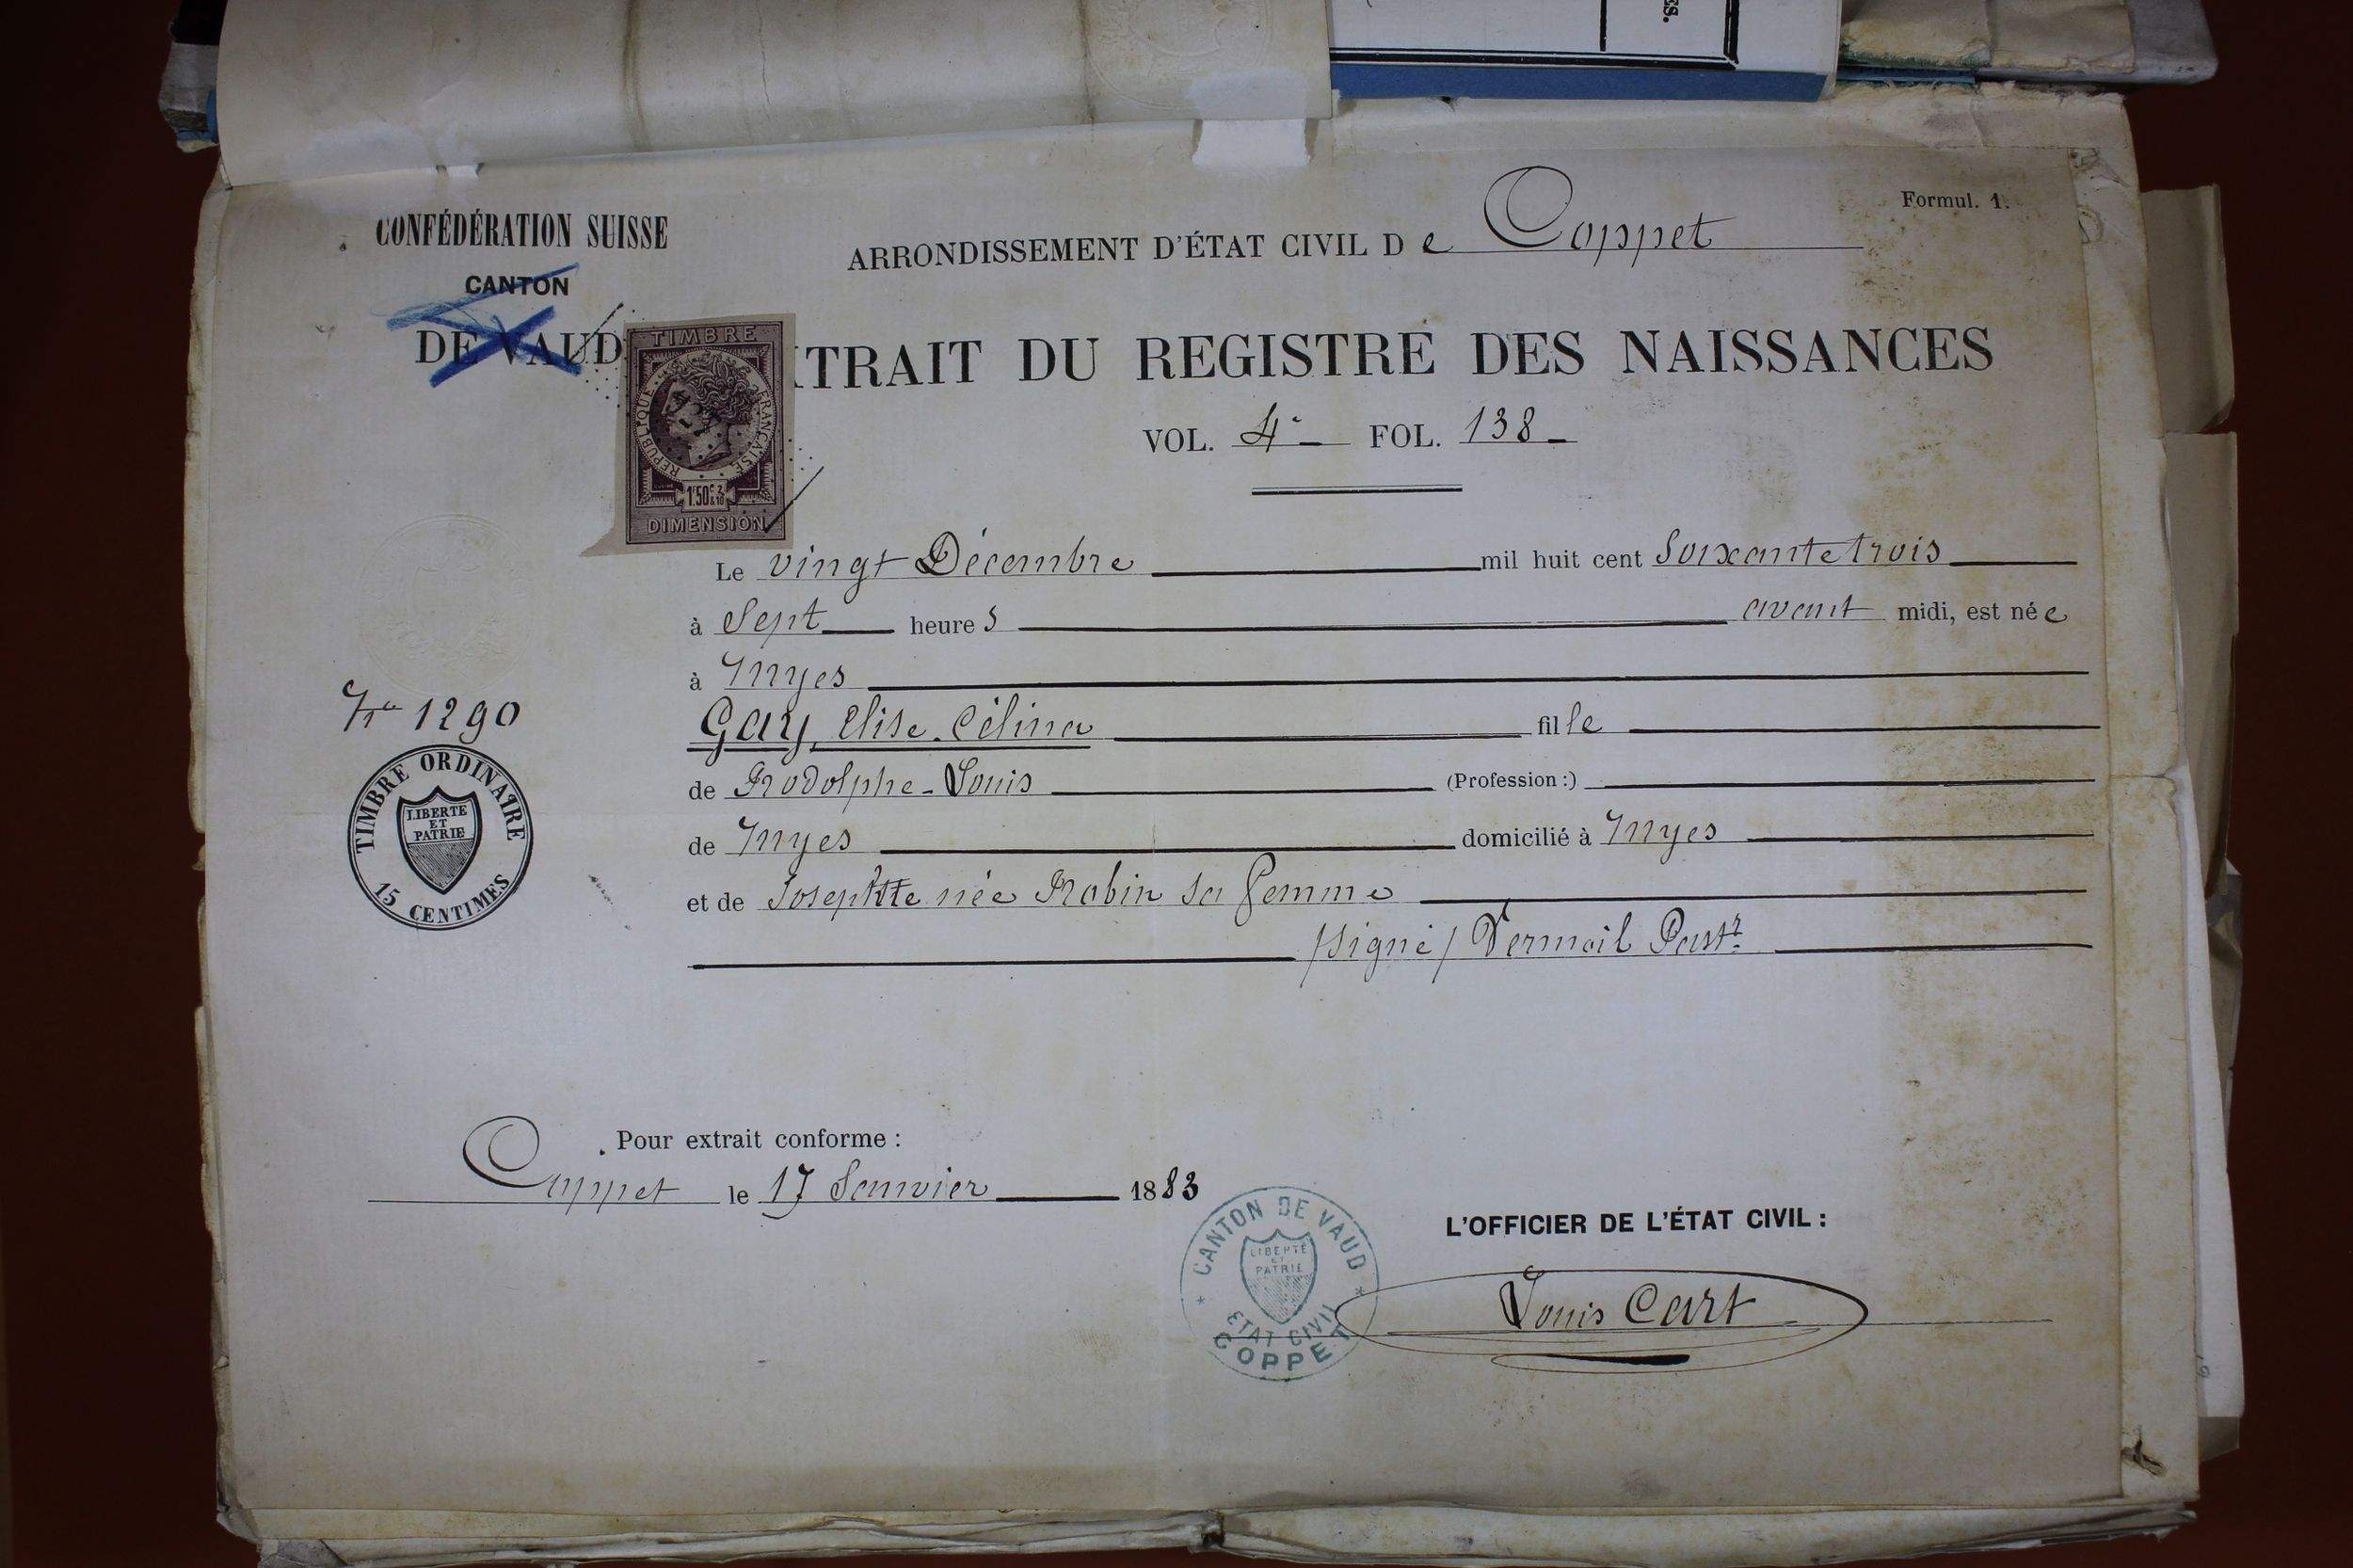 ES.
Formul. 1.
CONFÉDÉRATION SUISSE
CANTON
DE VAUD
ARRONDISSEMENT D'ÉTAT CIVIL De Coppet
TRAIT DU REGISTRE DES NAISSANCES
VOL. 4 FOL. 138
TIMBRE
RÉPUBLIQUE FRANÇAISE
1f50c 2/10
DIMENSION
Le vingt Décembre mil huit cent Soixante trois
à Sept heures avant midi, est née
à Myes
Gay, Elise-Célina fille
de Rodolphe-Louis (Profession:)
de Myes domicilié à Myes
et de Josephte née Robin sa femme
/signé/ Vermeil Past.r
No 1290
TIMBRE ORDINAIRE
LIBERTE
ET
PATRIE
15 CENTIMES
Pour extrait conforme :
Coppet le 17 Janvier 1883
CANTON DE VAUD
LIBERTE
ET
PATRIE
ETAT CIVIL
COPPET
L'OFFICIER DE L'ÉTAT CIVIL :
Louis Cart